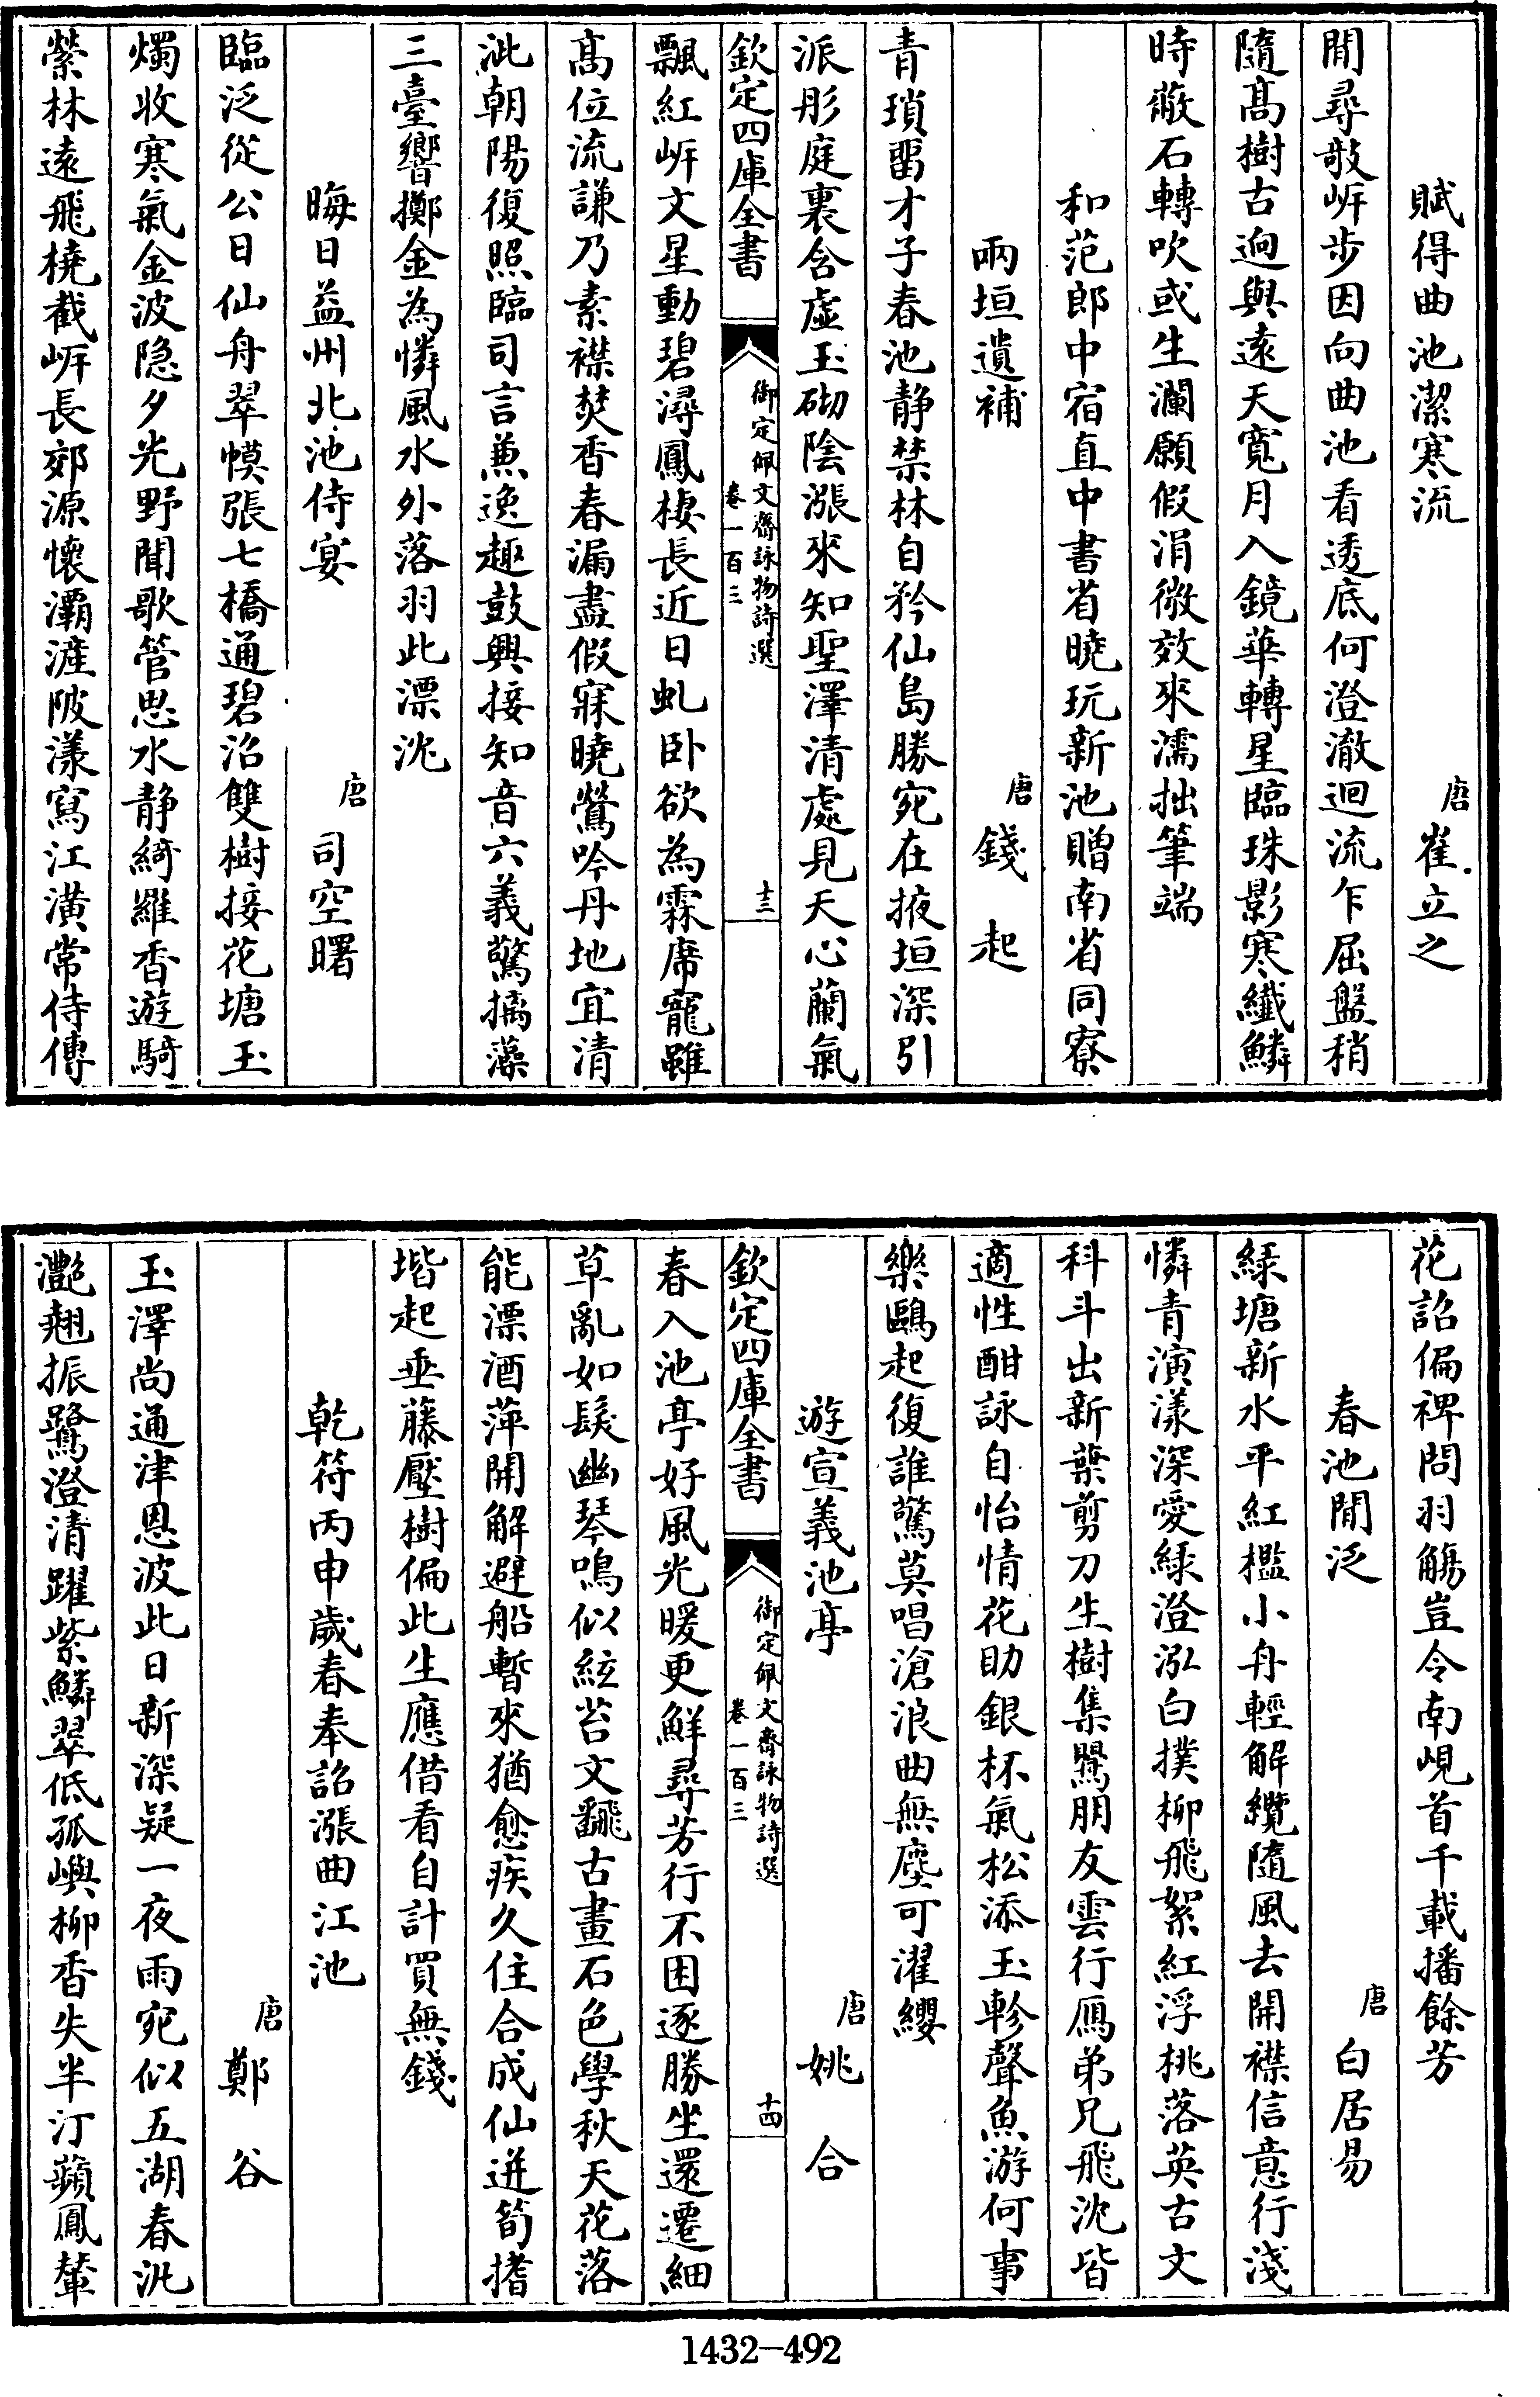 賦得曲池潔寒流　唐崔立之
閒尋欹岸步因向曲池看透底何澄澈迴流乍屈盤稍
隨高樹古迥與遠天寬月入鏡華轉星臨珠影寒纖鱗
時蔽石轉吹或生瀾願假涓微效來濡拙筆端
和范郎中宿直中書省曉玩新池贈南省同寮
兩垣遺補　唐錢起
青瑣留才子春池靜禁林自矜仙島勝宛在掖垣深引
派彤庭裏含虛玉砌陰漲來知聖澤清處見天心蘭氣
欽定四庫全書　御定佩文齋詠物詩選　卷一百三　十三
飄紅岸文星動碧潯鳳棲長近日虬卧欲為霖席寵雖
高位流謙乃素襟焚香春漏盡假寐曉鶯吟丹地宜清
泚朝陽復照臨司言兼逸趣鼓興接知音六義驚摛藻
三臺響擲金為憐風水外落羽此漂沈
晦日益州北池侍宴　唐司空曙
臨泛從公日仙舟翠幙張七橋通碧沼雙樹接花塘玉
燭收寒氣金波隠夕光野聞歌管思水靜綺羅香遊騎
縈林遠飛橈截岸長郊源懷灞滻陂漾寫江潢常侍傳
花詔偏裨問羽觴豈令南峴首千載播餘芳
春池閒泛　唐白居易
綠塘新水平紅檻小舟輕解纜隨風去開襟信意行淺
憐青演漾深愛綠澄泓白撲柳飛絮紅浮桃落英古文
科斗出新葉剪刀生樹集鸎朋友雲行鴈弟兄飛沈皆
適性酣詠自怡情花助銀杯氣松添玉軫聲魚游何事
樂鷗起復誰驚莫唱滄浪曲無塵可濯纓
遊宣義池亭　唐姚合
欽定四庫全書　御定佩文齋詠物詩選　卷一百三　十四
春入池亭好風光暖更鮮尋芳行不困逐勝坐還遷細
草亂如髮幽琴鳴似絃苔文飜古畫石色學秋天花落
能漂酒萍開解避船暫來猶愈疾久住合成仙迸筍揩
堦起垂藤壓樹偏此生應借看自計買無錢
乾符丙申歲春奉詔漲曲江池
唐鄭谷
玉澤尚通津恩波此日新深疑一夜雨宛似五湖春汎
灧翹振鷺澄清躍紫鱗翠低孤嶼柳香失半汀蘋鳳輦
1432-492